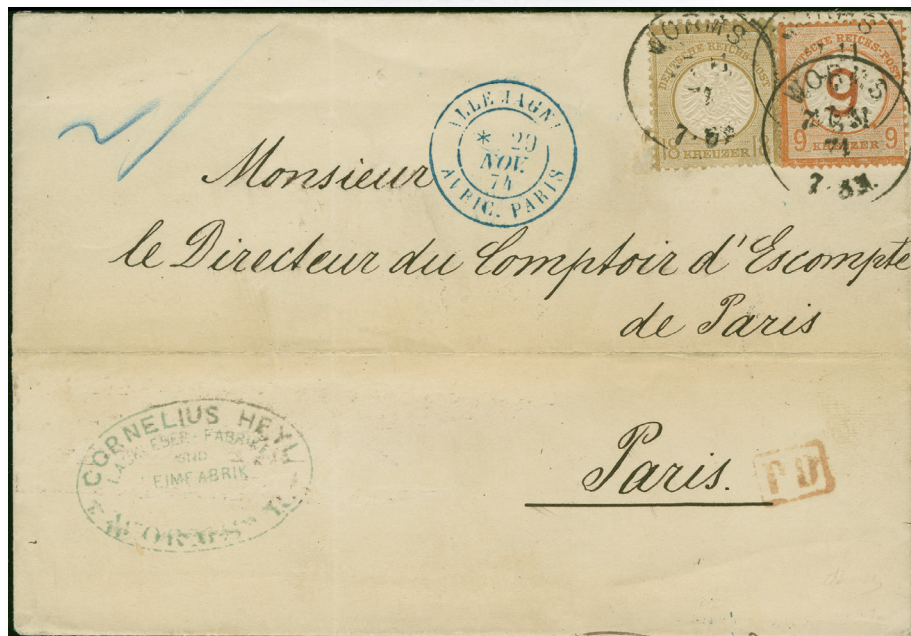 WORMS
7-8N.
DEUTSCHE REICHS-POST
18 KREUZER 18
DEUTSCHE REICHS-POST
9
9 KREUZER 9
WORMS
ALLEMAGNE
* 29
NOV.
74
AVRIC. PARIS
Monsieur
le Directeur du Comptoir d'Escompte
de Paris
Paris.
PD
CORNELIUS HEYL
LACKLEDER-FABRIK
UND
LEIMFABRIK
WORMS